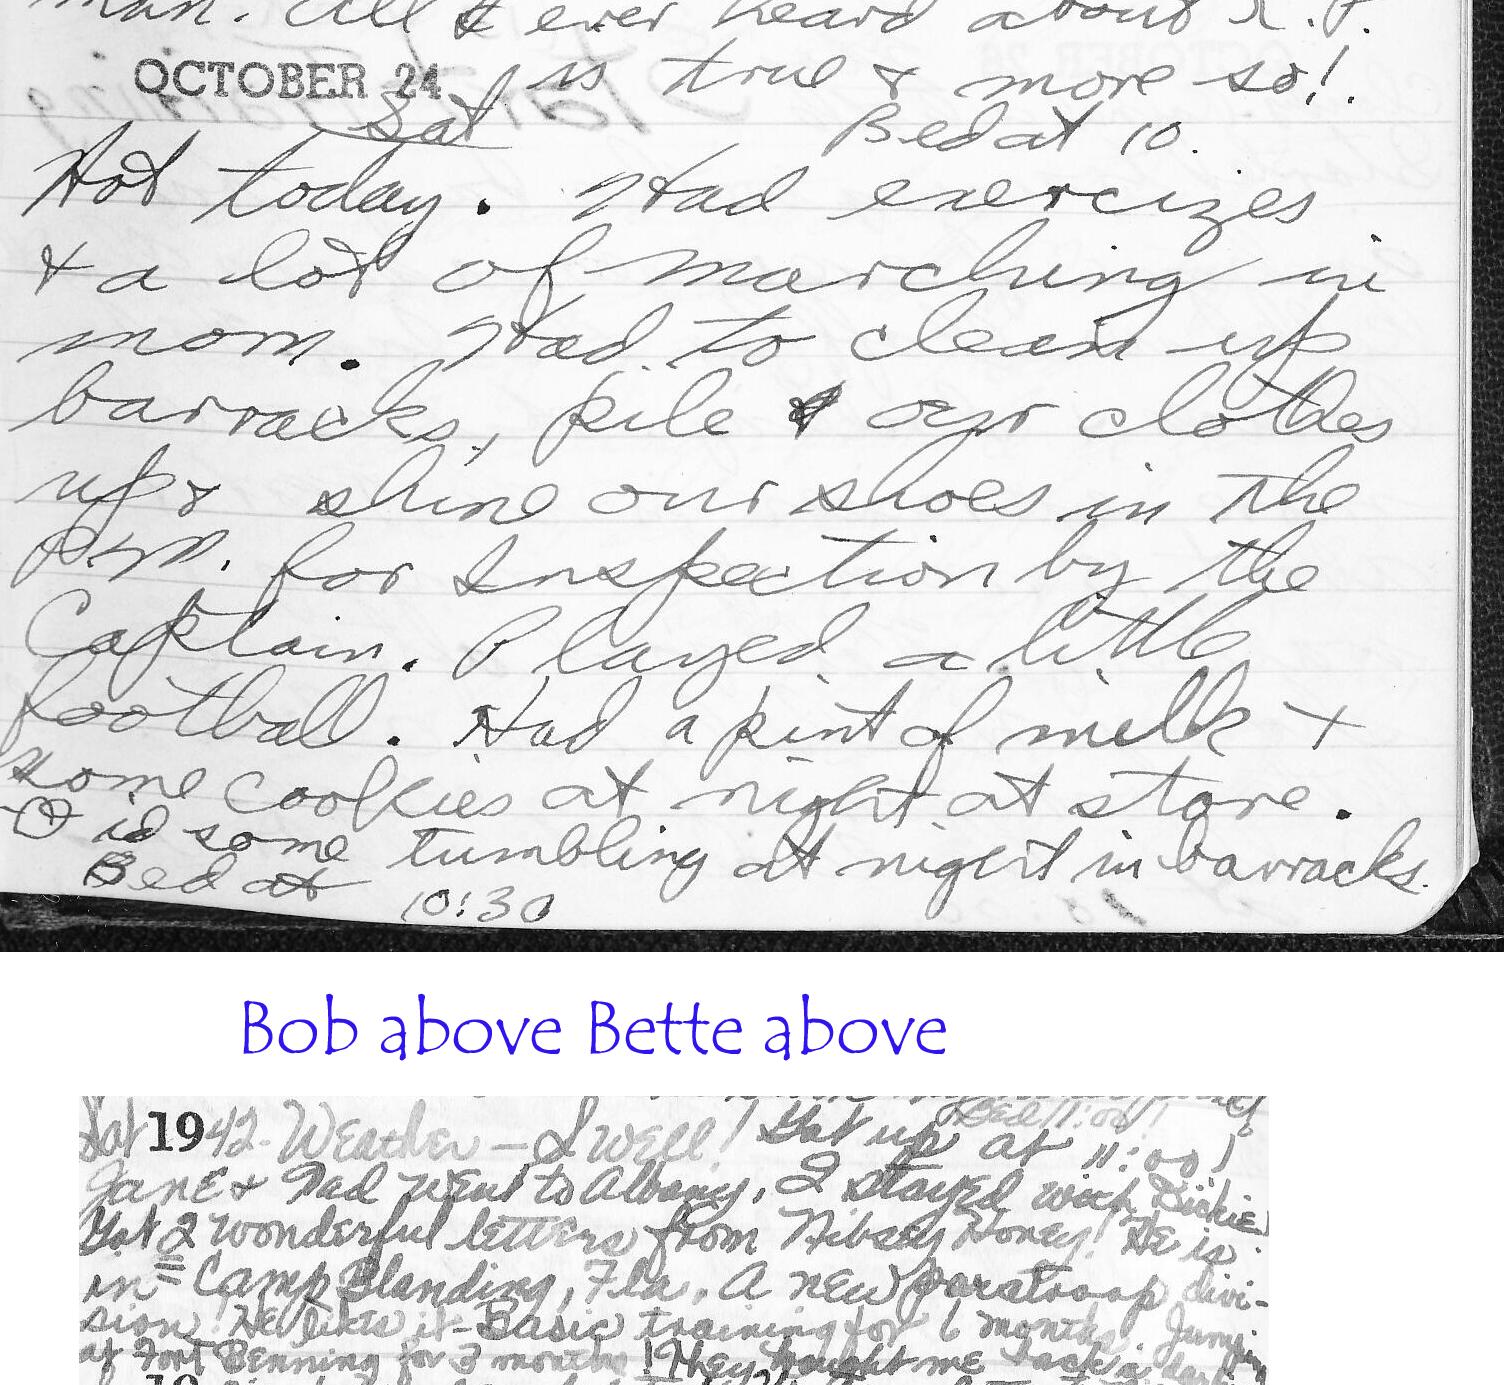 man. All I ever heard about K.P.
OCTOBER 24 is true & more so!.
Sat Bed at 10.
Hot today. Had exercizes
& a lot of marching in
morn. Had to clean up
barracks, pile our clothes
up & shine our shoes in the
P.M. for Inspection by the
Captain. Played a little
football. Had a pint of milk +
some cookies at night at store.
Did some tumbling at night in barracks.
Bed at 10:30
Bob above Bette above
Bed 11:00!
Sat 1942. Weather - Swell! Got up at 11:00!
Jane & Dad went to Albany. I stayed with Dickie
Got 2 wonderful letters from Honey! He is
in Camp Blanding, Fla. A new paratroop divi-
sion! He likes it - Basic training for 6 months. Jumping
at Fort Benning for 3 months! They brought me back a
19